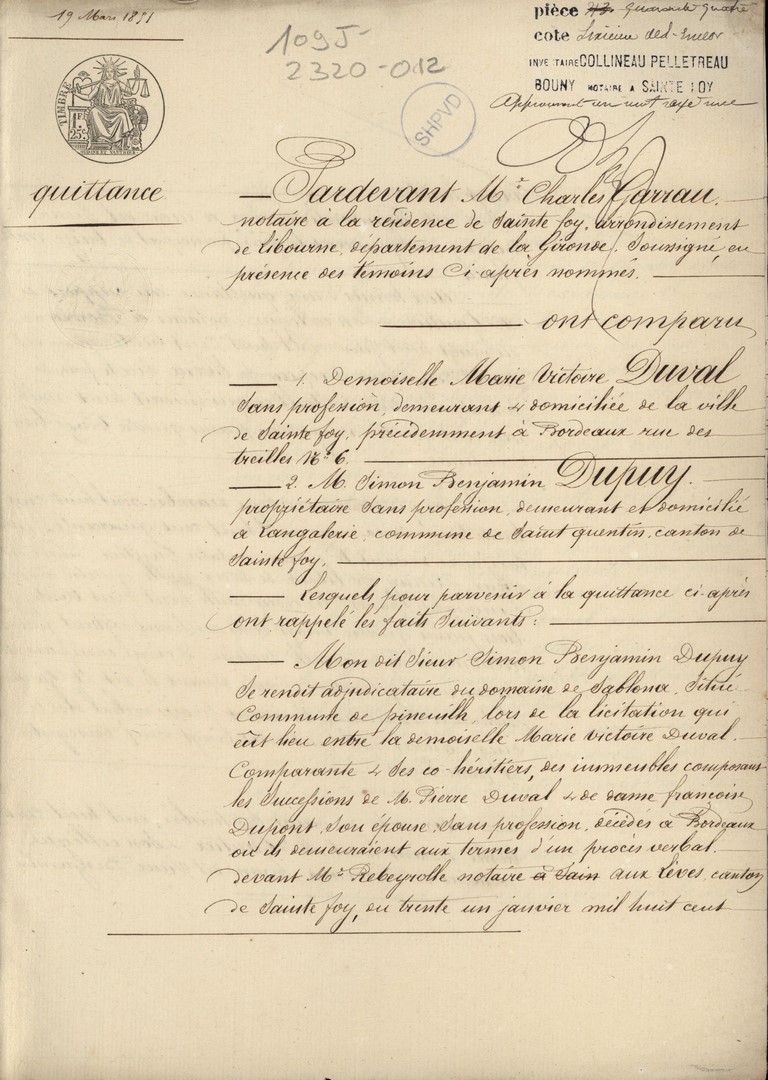 19 Mars 1891
109J-
2320-012
pièce 43 quarante quatre
cote Sixième
INVENTAIRE COLLINEAU PELLETREAU
BOUNY NOTAIRE A SAINTE FOY
Approuvant un mot rayé
SHPVD
TIMBRE
1F.
25c.
quittance
Pardevant Me Charles Garrau,
notaire à la résidence de Sainte foy, arrondissement
de Libourne, département de la Gironde, Soussigné, en
présence des témoins Ci-après nommés.
ont comparu
1. Demoiselle Marie Victoire Duval
Sans profession, demeurant & domiciliée de la ville
de Sainte foy, précédemment à Bordeaux rue des
treilles No 6.
2. M. Simon Benjamin Dupuy.
propriétaire Sans profession, demeurant et domicilié
à Langalerie, commune de Saint quentin, canton de
Sainte foy,
Lesquels pour parvenir à la quittance ci-après
ont rappelé les faits Suivants:
Mon dit Sieur Simon Benjamin Dupuy
Se rendit adjudicataire du domaine de Sablona, Situé
Commune de pineuilh, lors de la licitation qui
eût lieu entre la demoiselle Marie victoire Duval.
Comparante & Ses co-héritiers, des immeubles composant
les Successions de M. Pierre Duval & de dame françoise
Dupont, Son épouse, Sans profession, décédés à Bordeaux
où ils demeuraient aux termes d'un procès verbal
devant Me Rebeyrolle notaire à Sain aux Lèves, canton
de Sainte foy, du trente un janvier mil huit cent